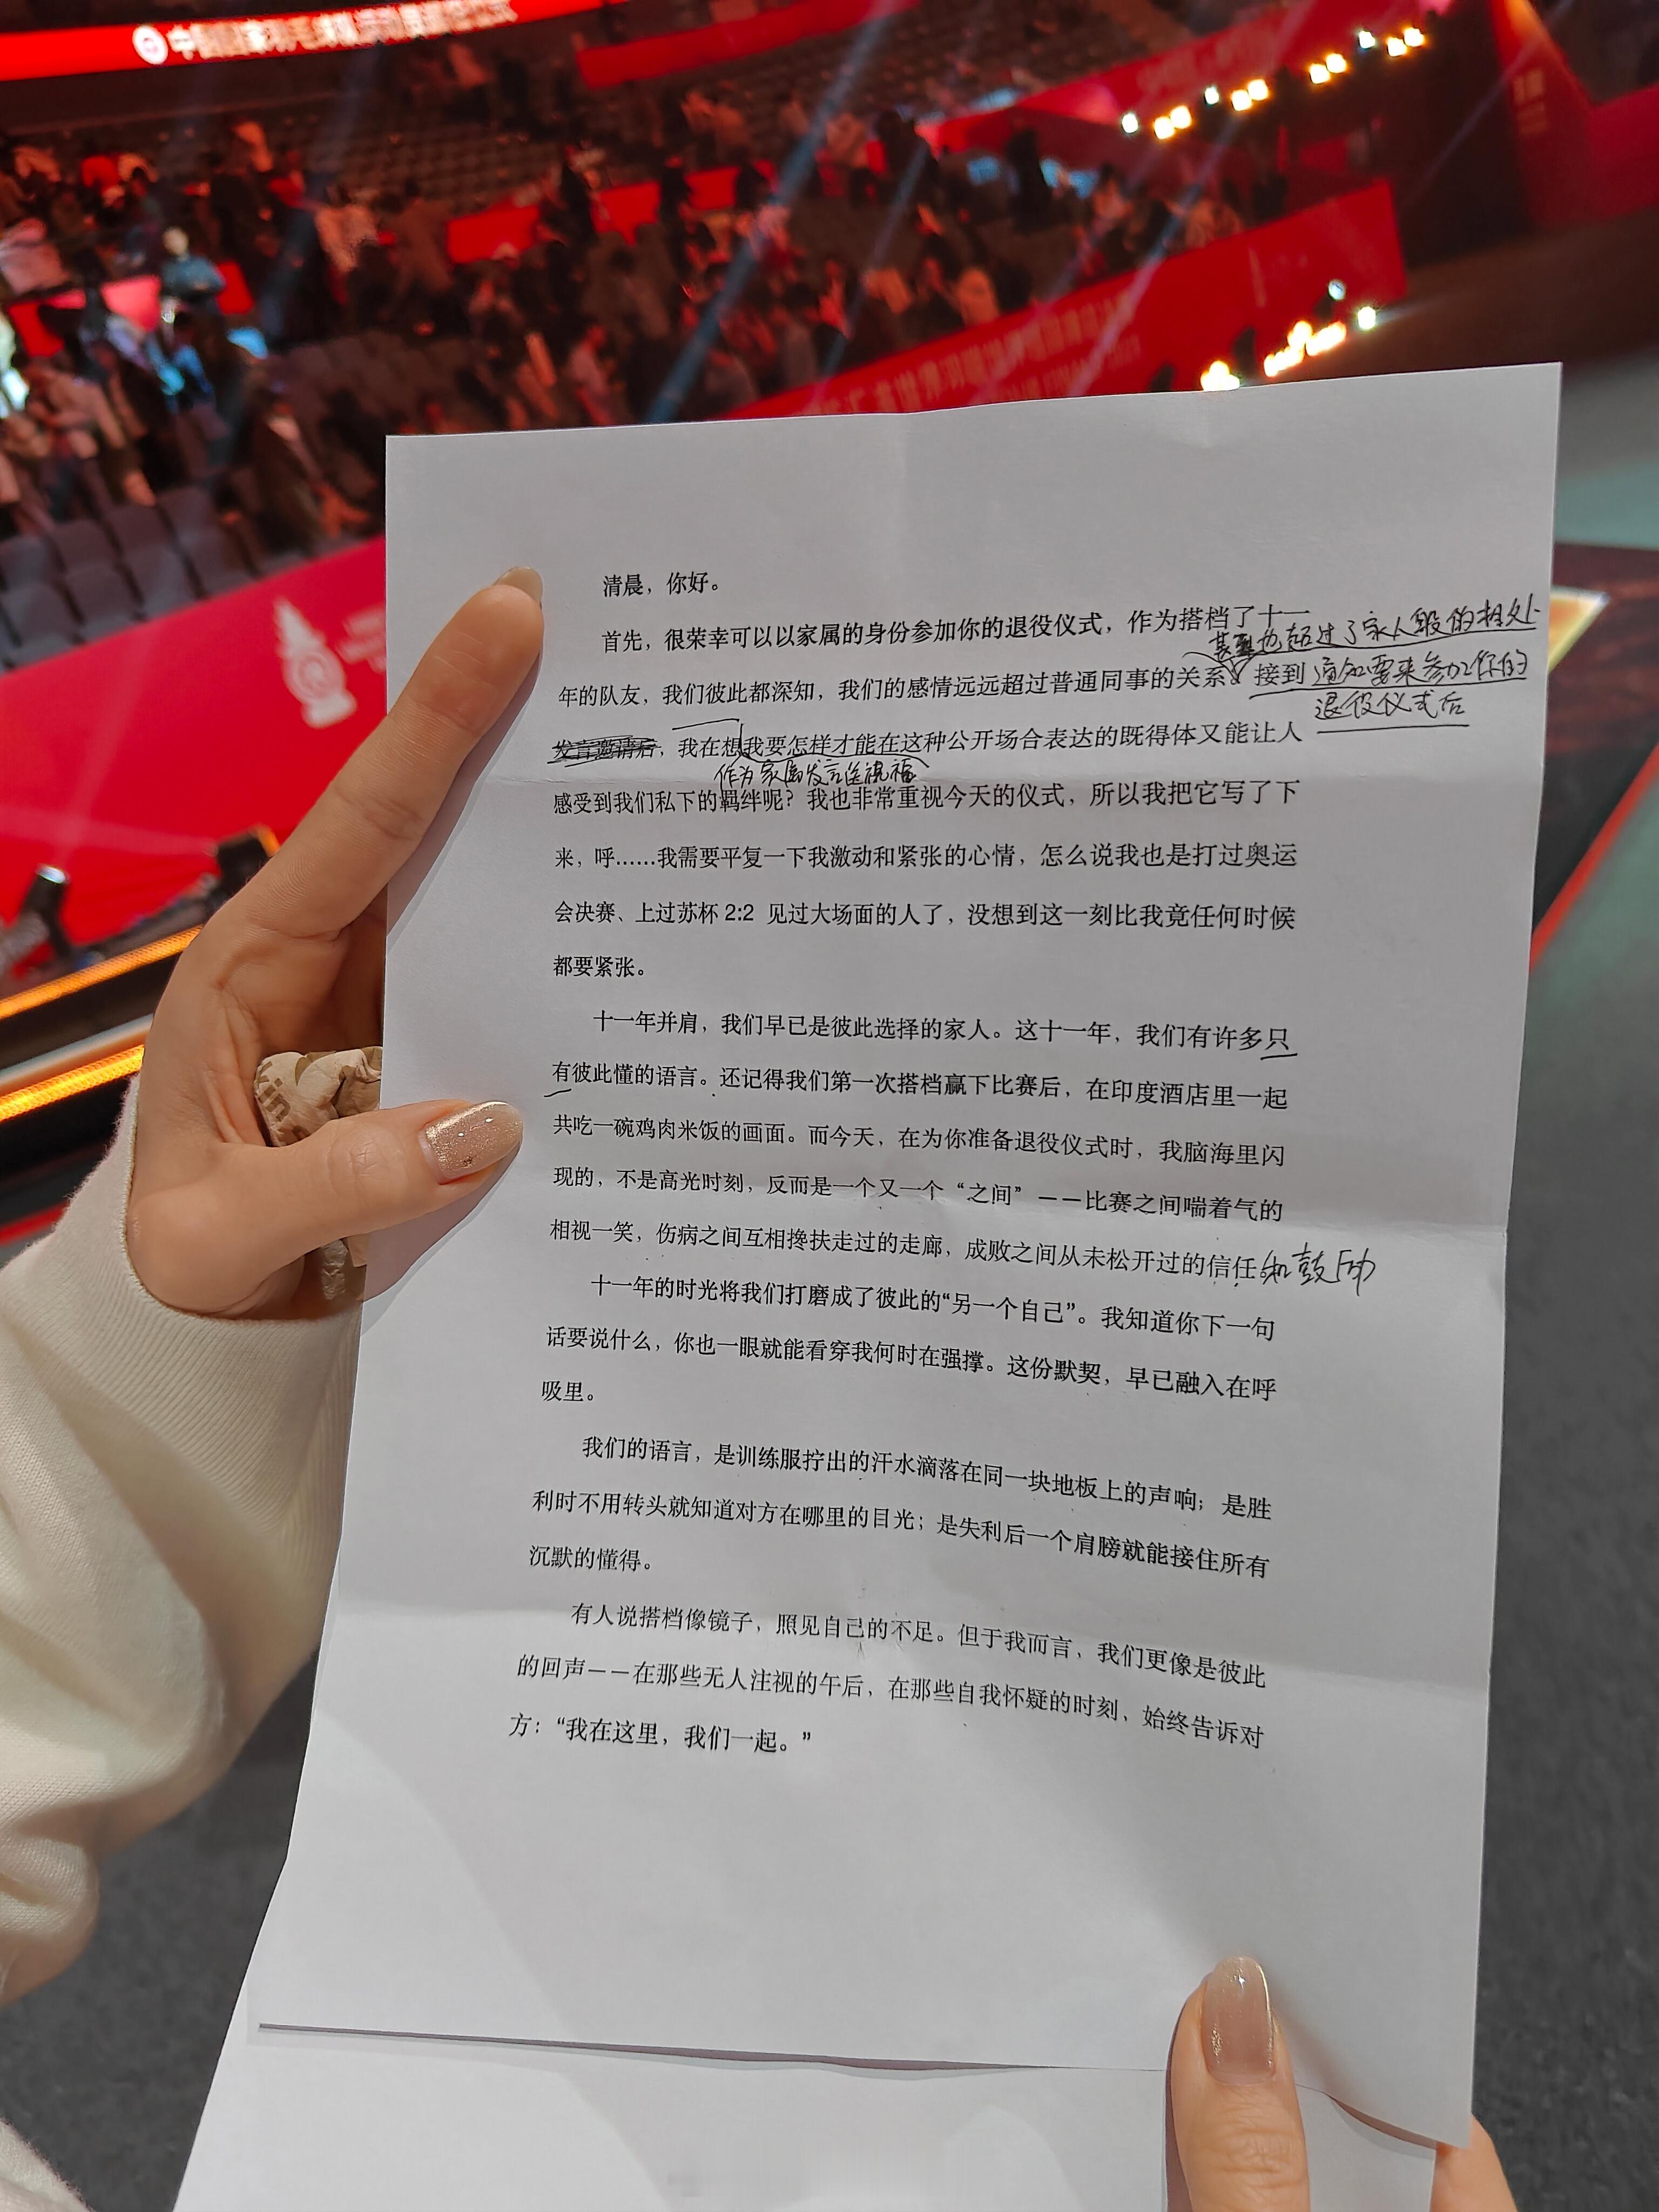 清晨，你好。
首先，很荣幸可以以家属的身份参加你的退役仪式，作为搭档了十一
甚至也超过了家人般的相处
年的队友，我们彼此都深知，我们的感情远远超过普通同事的关系。接到 通知要来参加你的
退役仪式后
发言邀请后，我在想我要怎样才能在这种公开场合表达的既得体又能让人
作为家属发言送祝福
感受到我们私下的羁绊呢？我也非常重视今天的仪式，所以我把它写了下
来，呼……我需要平复一下我激动和紧张的心情，怎么说我也是打过奥运
会决赛、上过苏杯 2:2 见过大场面的人了，没想到这一刻比我竟任何时候
都要紧张。
十一年并肩，我们早已是彼此选择的家人。这十一年，我们有许多只
有彼此懂的语言。还记得我们第一次搭档赢下比赛后，在印度酒店里一起
共吃一碗鸡肉米饭的画面。而今天，在为你准备退役仪式时，我脑海里闪
现的，不是高光时刻，反而是一个又一个“之间”——比赛之间喘着气的
相视一笑，伤病之间互相搀扶走过的走廊，成败之间从未松开过的信任和鼓励
十一年的时光将我们打磨成了彼此的“另一个自己”。我知道你下一句
话要说什么，你也一眼就能看穿我何时在强撑。这份默契，早已融入在呼
吸里。
我们的语言，是训练服拧出的汗水滴落在同一块地板上的声响；是胜
利时不用转头就知道对方在哪里的目光；是失利后一个肩膀就能接住所有
沉默的懂得。
有人说搭档像镜子，照见自己的不足。但于我而言，我们更像是彼此
的回声——在那些无人注视的午后，在那些自我怀疑的时刻，始终告诉对
方：“我在这里，我们一起。”